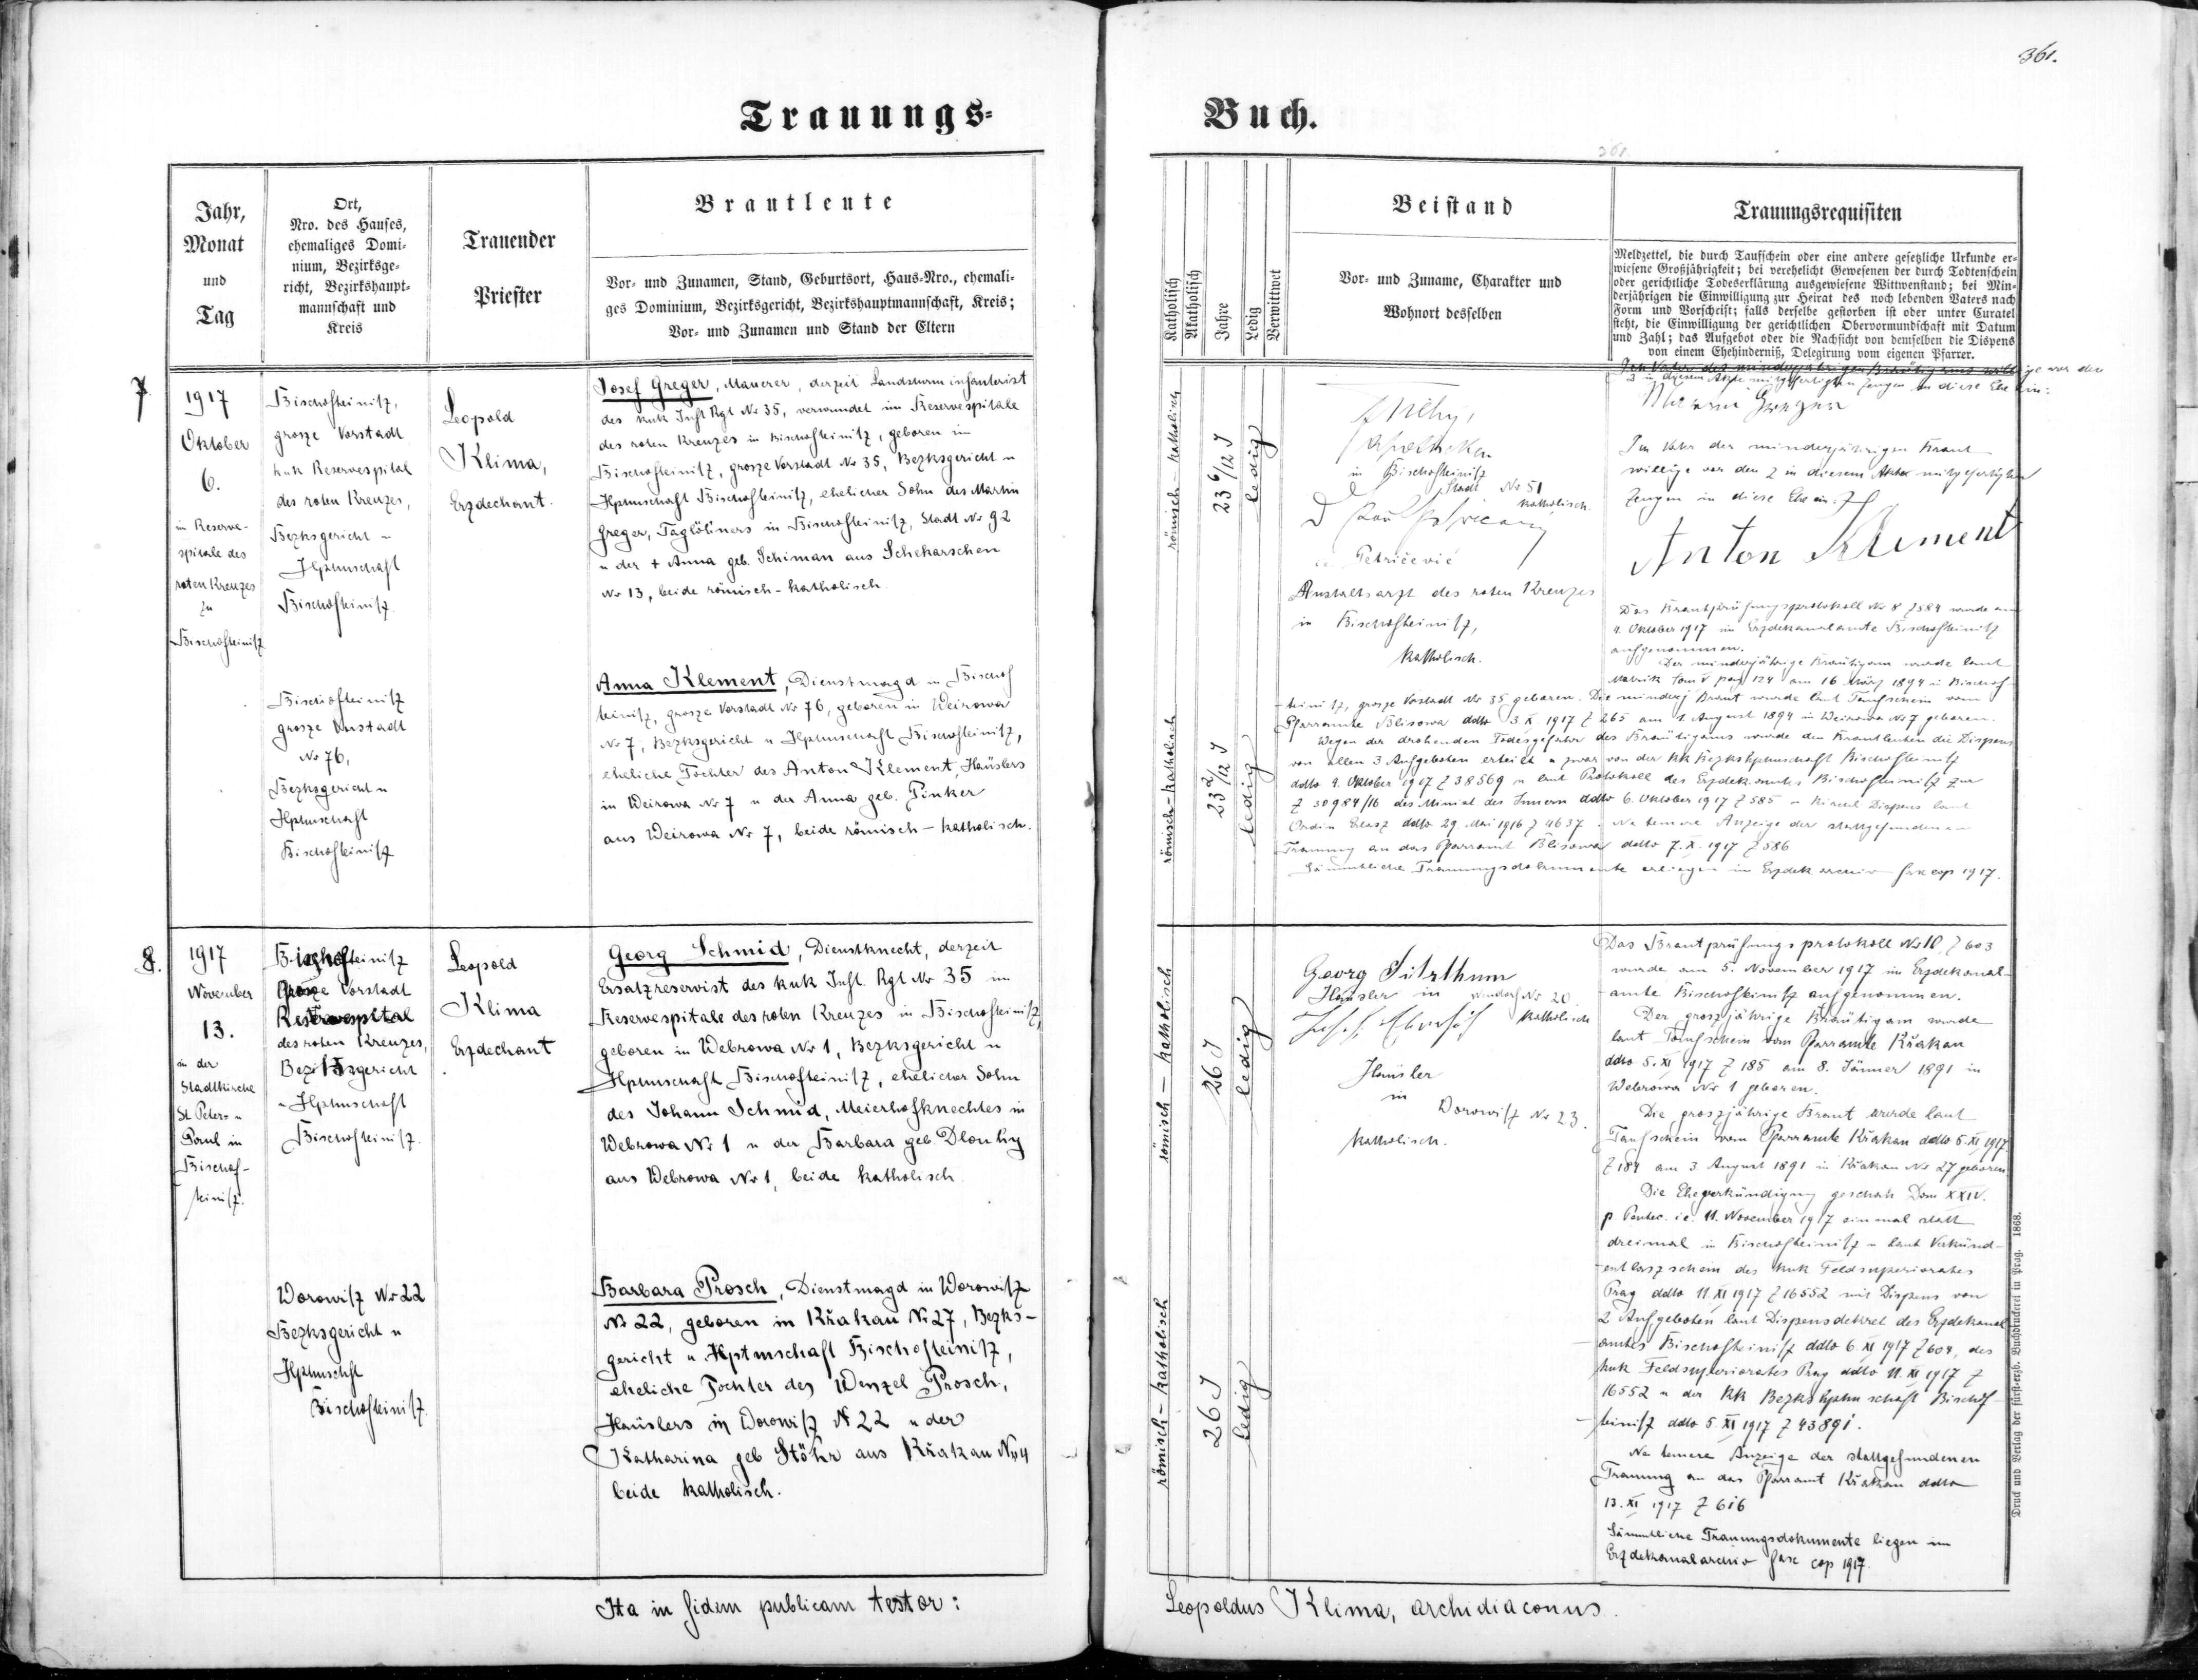 361.
Trauungs-
Buch.
361.
Jahr,
Monat
und
Tag
Ort,
Nro. des Hauses,
ehemaliges Domi-
nium, Bezirksge-
richt, Bezirkshaupt-
mannschaft und
Kreis
Trauender
Priester
Brautleute
Vor- und Zunamen, Stand, Geburtsort, Haus-Nro., ehemali-
ges Dominium, Bezirksgericht, Bezirkshauptmannschaft, Kreis;
Vor- und Zunamen und Stand der Eltern
Katholisch
Akatholisch
Jahre
Ledig
Verwittwet
Beistand
Vor- und Zuname, Charakter und
Wohnort desselben
Trauungsrequisiten
Meldzettel, die durch Taufschein oder eine andere gesetzliche Urkunde er-
wiesene Großjährigkeit; bei verehelicht Gewesenen der durch Todtenschein
oder gerichtliche Todeserklärung ausgewiesene Wittwenstand; bei Min-
derjährigen die Einwilligung zur Heirat des noch lebenden Vaters nach
Form und Vorschrift; falls derselbe gestorben ist oder unter Curatel
steht, die Einwilligung der gerichtlichen Obervormundschaft mit Datum
und Zahl; das Aufgebot oder die Nachsicht von demselben die Dispens
von einem Ehehinderniß, Delegirung vom eigenen Pfarrer.
7
1917
Oktober
6.
in Reserve-
spitale des
roten Kreuzes
zu
Bischofteinitz
Bischofteinitz,
grosze Vorstadt
kuk Reservespital
des roten Kreuzes,
Bezksgericht u
Hptmschaft
Bischofteinitz.
Leopold
Klima,
Erzdechant.
Josef Greger, Mauerer, derzeit Landsturm infanterist
des kuk Inft Rgt Nr 35, verwundet im Reservespitale
des roten Kreuzes in Bischofteinitz, geboren in
Bischofteinitz, grosze Vorstadt Nr 35, Bezksgericht u
Hptmschaft Bischofteinitz, ehelicher Sohn des Martin
Greger, Taglöhners in Bischofteinitz, Stadt Nr 92
u der + Anna geb. Schiman aus Schekarschen
Nr 13, beide römisch-katholisch.
Bischofteinitz
grosze Vorstadt
No 76,
Bezksgericht u
Hptmschaft
Bischofteinitz
Anna Klement, Dienstmagd in Bischof
teinitz, grosze Vorstadt Nr 76, geboren in Weirowa
Nr 7, Bezksgericht u Hptmschaft Bischofteinitz,
eheliche Tochter des Anton Klement, Häuslers
in Weirowa Nr 7 u der Anna geb. Pinker
aus Weirowa Nr 7, beide römisch-katholisch.
römisch-katholisch
23 6/12 J
ledig
römisch-katholisch
23 2/12 J
ledig
in Bischofteinitz
Stadt Nr 51
katholisch.
Petričević
Anstaltsarzt des roten Kreuzes
in Bischofteinitz,
katholisch.
Ich Vater des minderjährigen Bräutigams willige vor den
3 in diesem Akte mitgefertigten Zeugen in diese Ehe ein:
Greger
Im Vater der minderjährigen Braut
willige vor den 2 in diesem Akte mitgefertigten
Zeugen in diese Ehe ein:
Anton Klement
Das Brautprüfungsprotokoll Nr 8 Z 584 wurde am
4. Oktober 1917 im Erzdekanalamte Bischofteinitz
aufgenommen.
Der minderjährige Bräutigam wurde laut
Matrik Tom V pag 124 am 16 März 1894 in Bischof-
teinitz, grosze Vorstadt Nr 35 geboren. Die minderj Braut wurde laut Taufschein vom
Pfarramte Blisowa ddto 3. X 1917 Z 265 am 1. August 1894 in Weirowa Nr 7 geboren.
Wegen der drohenden Todesgefahr des Bräutigams wurde den Brautleuten die Dispens
von allen 3 Aufgeboten erteilt u zwar von der kk Bezkshptmschaft Bischofteinitz
ddto 4. Oktober 1917 Z 38569 u laut Protokoll des Erzdekanamtes Bischofteinitz zur
Z 30984/16 des Minist des Innern ddto 6. Oktober 1917 Z 585 u kirchl Dispens laut
Ordin Erlasz ddto 29. Mai 1916 Z 4637. Ne temere Anzeige der stattgefundenen
Trauung an das Pfarramt Blisowa ddto 7. X. 1917 Z 586
Sämmtliche Trauungsdokumente erliegen im Erzdek archiv fasc cop 1917.
8.
1917
November
13.
in der
Stadtkirche
St Peter- u
Paul in
Bischof-
teinitz.
Bischofteinitz
Grosze Vorstadt
Reservespital
des roten Kreuzes,
Bezirksgericht
u Hptmschaft
Bischofteinitz.
Leopold
Klima
Erzdechant
Georg Schmid, Dienstknecht, derzeit
Ersatzreservist des kuk Inft. Rgt Nr 35 im
Reservespitale des roten Kreuzes in Bischofteinitz,
geboren in Webrowa Nr 1, Bezksgericht u
Hptmschaft Bischofteinitz, ehelicher Sohn
des Johann Schmid, Meierhofknechtes in
Webrowa Nr 1 u der Barbara geb. Dlouhy
aus Webrowa Nr 1, beide katholisch.
Worowitz Nr 22
Bezksgericht u
Hptmschft
Bischofteinitz.
Barbara Prosch, Dienstmagd in Worowitz
Nr 22, geboren in Křakau Nr 27, Bezks-
gericht u. Hptmschaft Bischofteinitz,
eheliche Tochter des Wenzel Prosch,
Häuslers in Worowitz N 22 u der
Katharina geb Stöhr aus Křakau Nr 4
beide katholisch.
römisch-katholisch
26 J
ledig
römisch-katholisch
26 J
ledig
Georg Sitzthum
Häusler in Nr 20.
katholisch
Häusler
in
Worowitz Nr 23.
katholisch.
Das Brautprüfungsprotokoll Nr 10, Z 603
wurde am 5. November 1917 im Erzdekanal-
amte Bischofteinitz aufgenommen.
Der groszjährige Bräutigam wurde
laut Taufschein vom Pfarramte Křakau
ddto 5. XI 1917 Z 185 am 8. Jänner 1891 in
Webrowa Nr 1 geboren.
Die groszjährige Braut wurde laut
Taufschein vom Pfarramte Křakau ddto 5. XI 1917
Z 184 am 3. August 1891 in Křakau Nr 27 geboren.
Die Eheverkündigung geschah Dom XXIV.
p. Pentec. i.e. 11. November 1917 einmal statt
dreimal in Bischofteinitz u laut Verkünd-
entlaszschein des kuk Feldsuperiorates
Prag ddto 11. XI 1917 Z 16552 mit Dispens von
2 Aufgeboten laut Dispensdekret des Erzdekanal
amtes Bischofteinitz ddto 6. XI 1917 Z 604, des
kuk Feldsuperiorates Prag ddto 11. XI 1917 Z
16552 u der kk Bezkshptmschaft Bischof-
teinitz ddto 5. XI 1917 Z 43891.
Ne temere Anzeige der stattgefundenen
Trauung an das Pfarramt Křakau ddto
13. XI 1917 Z 616
Sämmtliche Trauungsdokumente liegen im
Erzdekanalarchiv fasc cop 1917.
Druck und Verlag der fürst-erzb. Buchdruckerei in Prag. 1868.
Ita in fidem publicam testor:
Leopoldus Klima, archidiaconus.